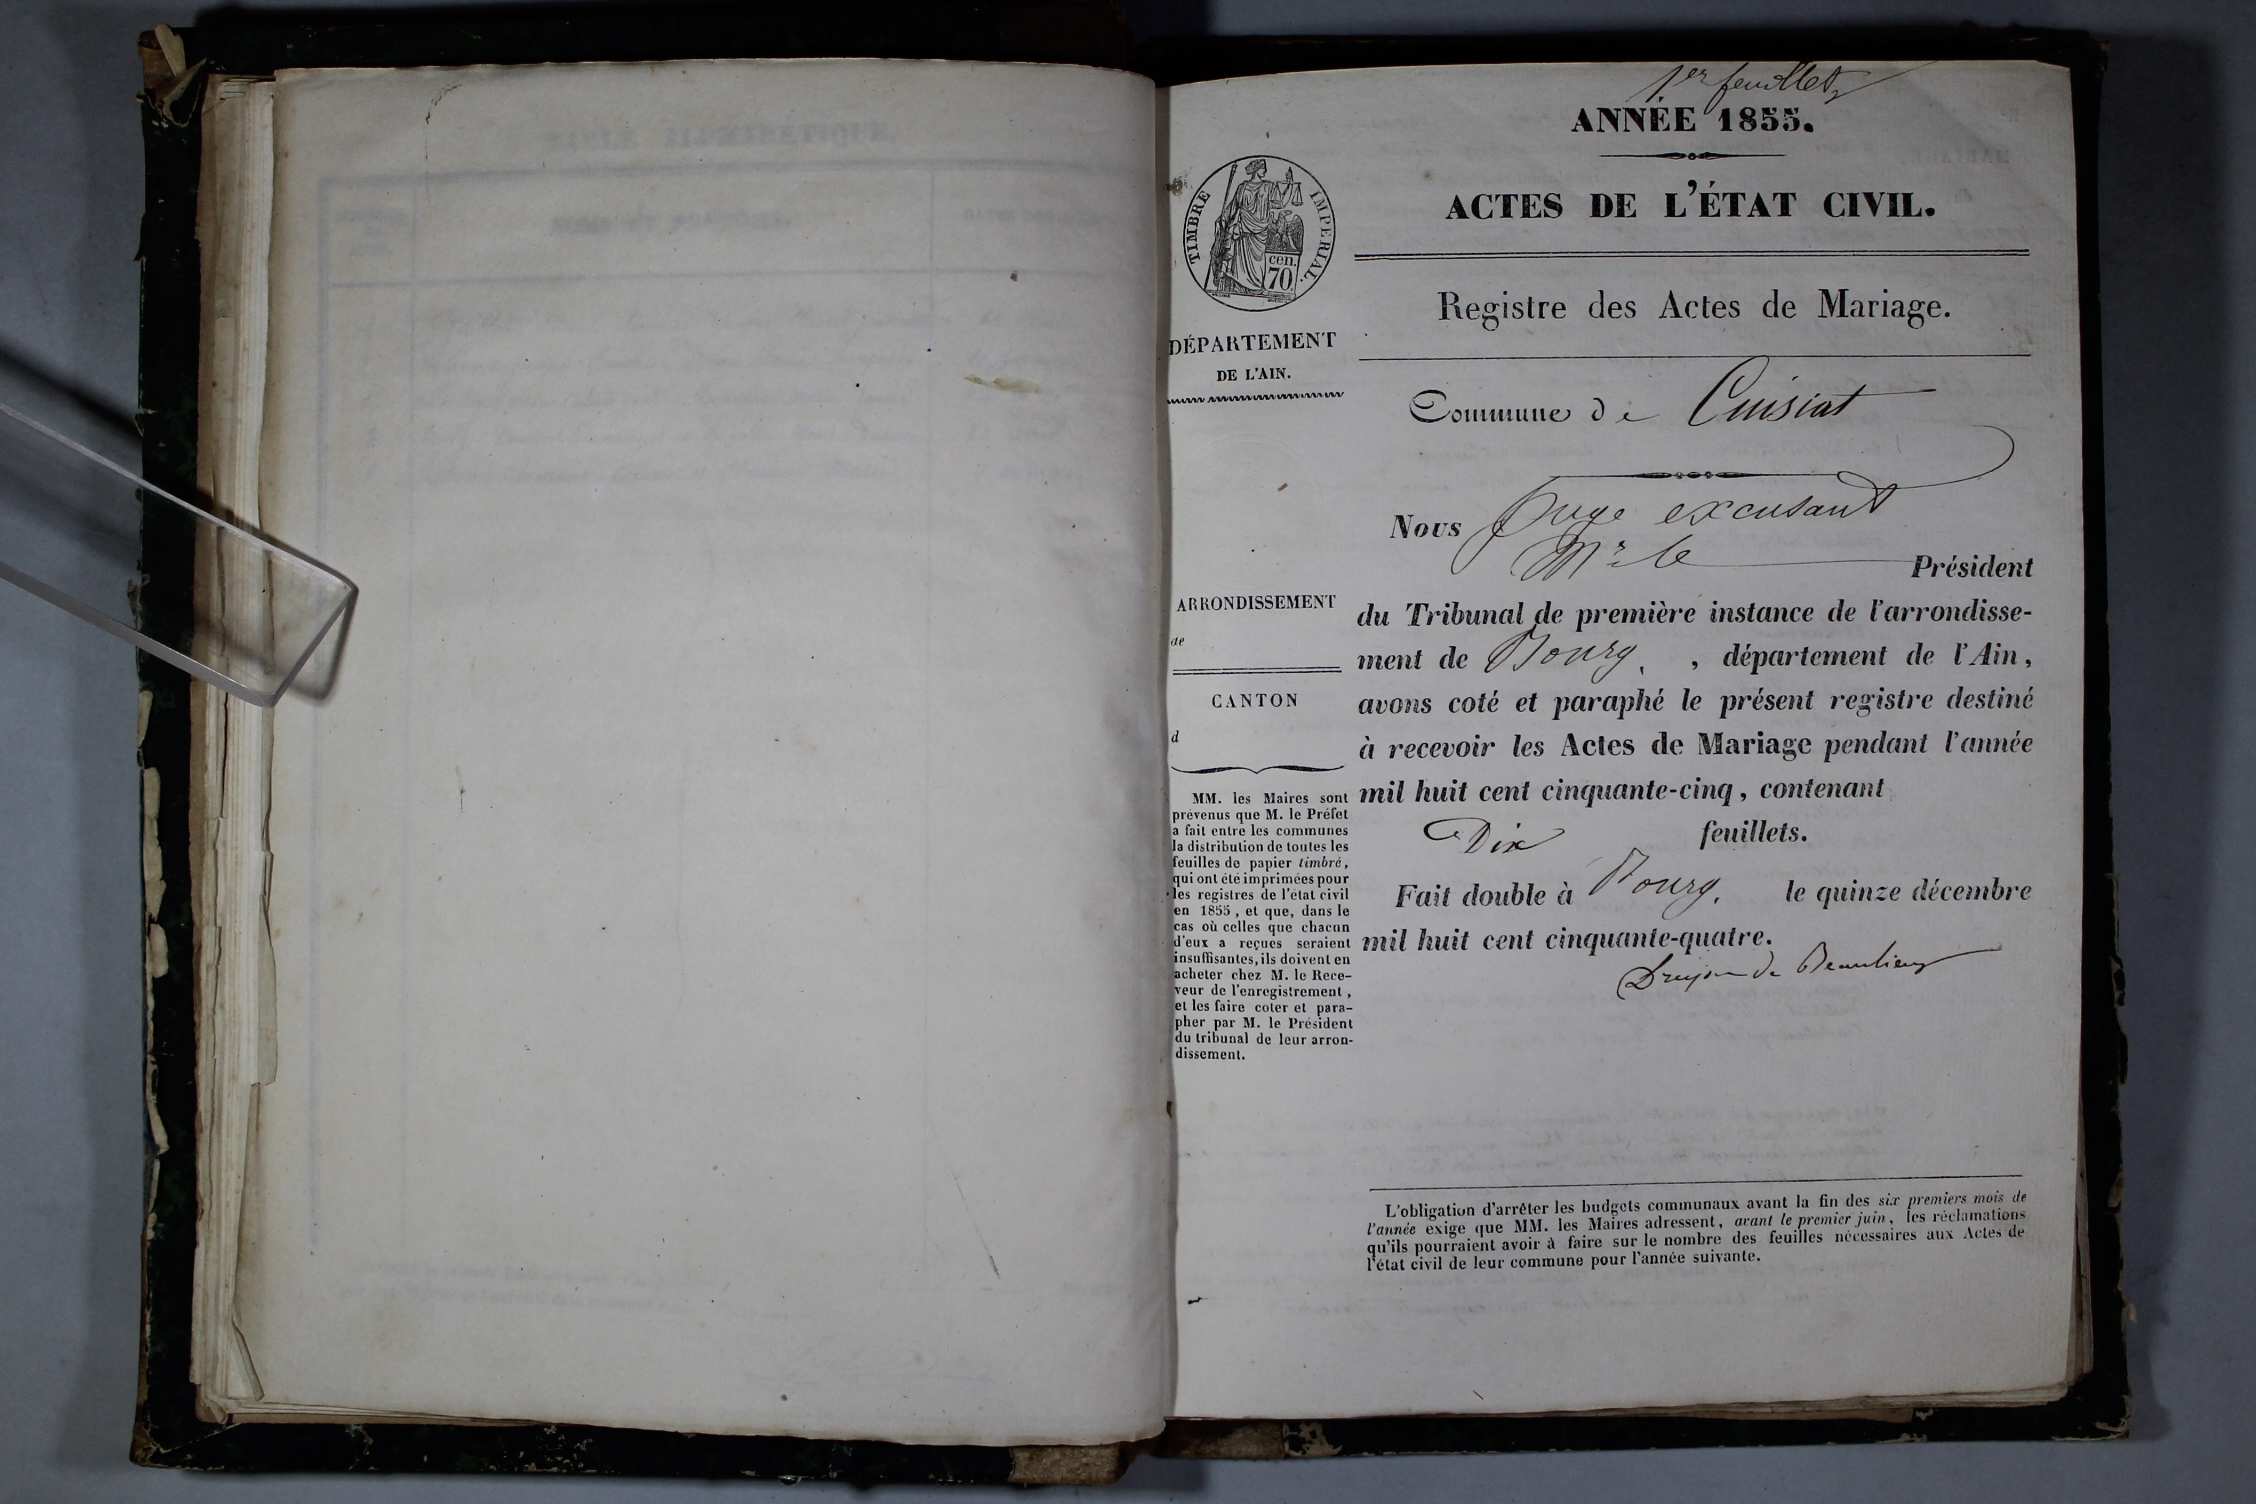 1er feuillet
ANNÉE 1855.
ACTES DE L'ÉTAT CIVIL.
Registre des Actes de Mariage.
Commune de Cuisiat
Nous Juge excusant
Mr le Président
du Tribunal de première instance de l'arrondisse-
ment de Bourg, , département de l'Ain,
avons coté et paraphé le présent registre destiné
à recevoir les Actes de Mariage pendant l'année
mil huit cent cinquante-cinq, contenant
Dix feuillets.
Fait double à Bourg, le quinze décembre
mil huit cent cinquante-quatre.
Drujon de Beaulieu
L'obligation d'arrêter les budgets communaux avant la fin des six premiers mois de
l'année exige que MM. les Maires adressent, avant le premier juin, les réclamations
qu'ils pourraient avoir à faire sur le nombre des feuilles nécessaires aux Actes de
l'état civil de leur commune pour l'année suivante.
TIMBRE IMPÉRIAL.
cen.
70
DÉPARTEMENT
DE L'AIN.
ARRONDISSEMENT
de
CANTON
d
MM. les Maires sont
prévenus que M. le Préfet
a fait entre les communes
la distribution de toutes les
feuilles de papier timbré,
qui ont été imprimées pour
les registres de l'état civil
en 1855, et que, dans le
cas où celles que chacun
d'eux a reçues seraient
insuffisantes, ils doivent en
acheter chez M. le Rece-
veur de l'enregistrement,
et les faire coter et para-
pher par M. le Président
du tribunal de leur arron-
dissement.